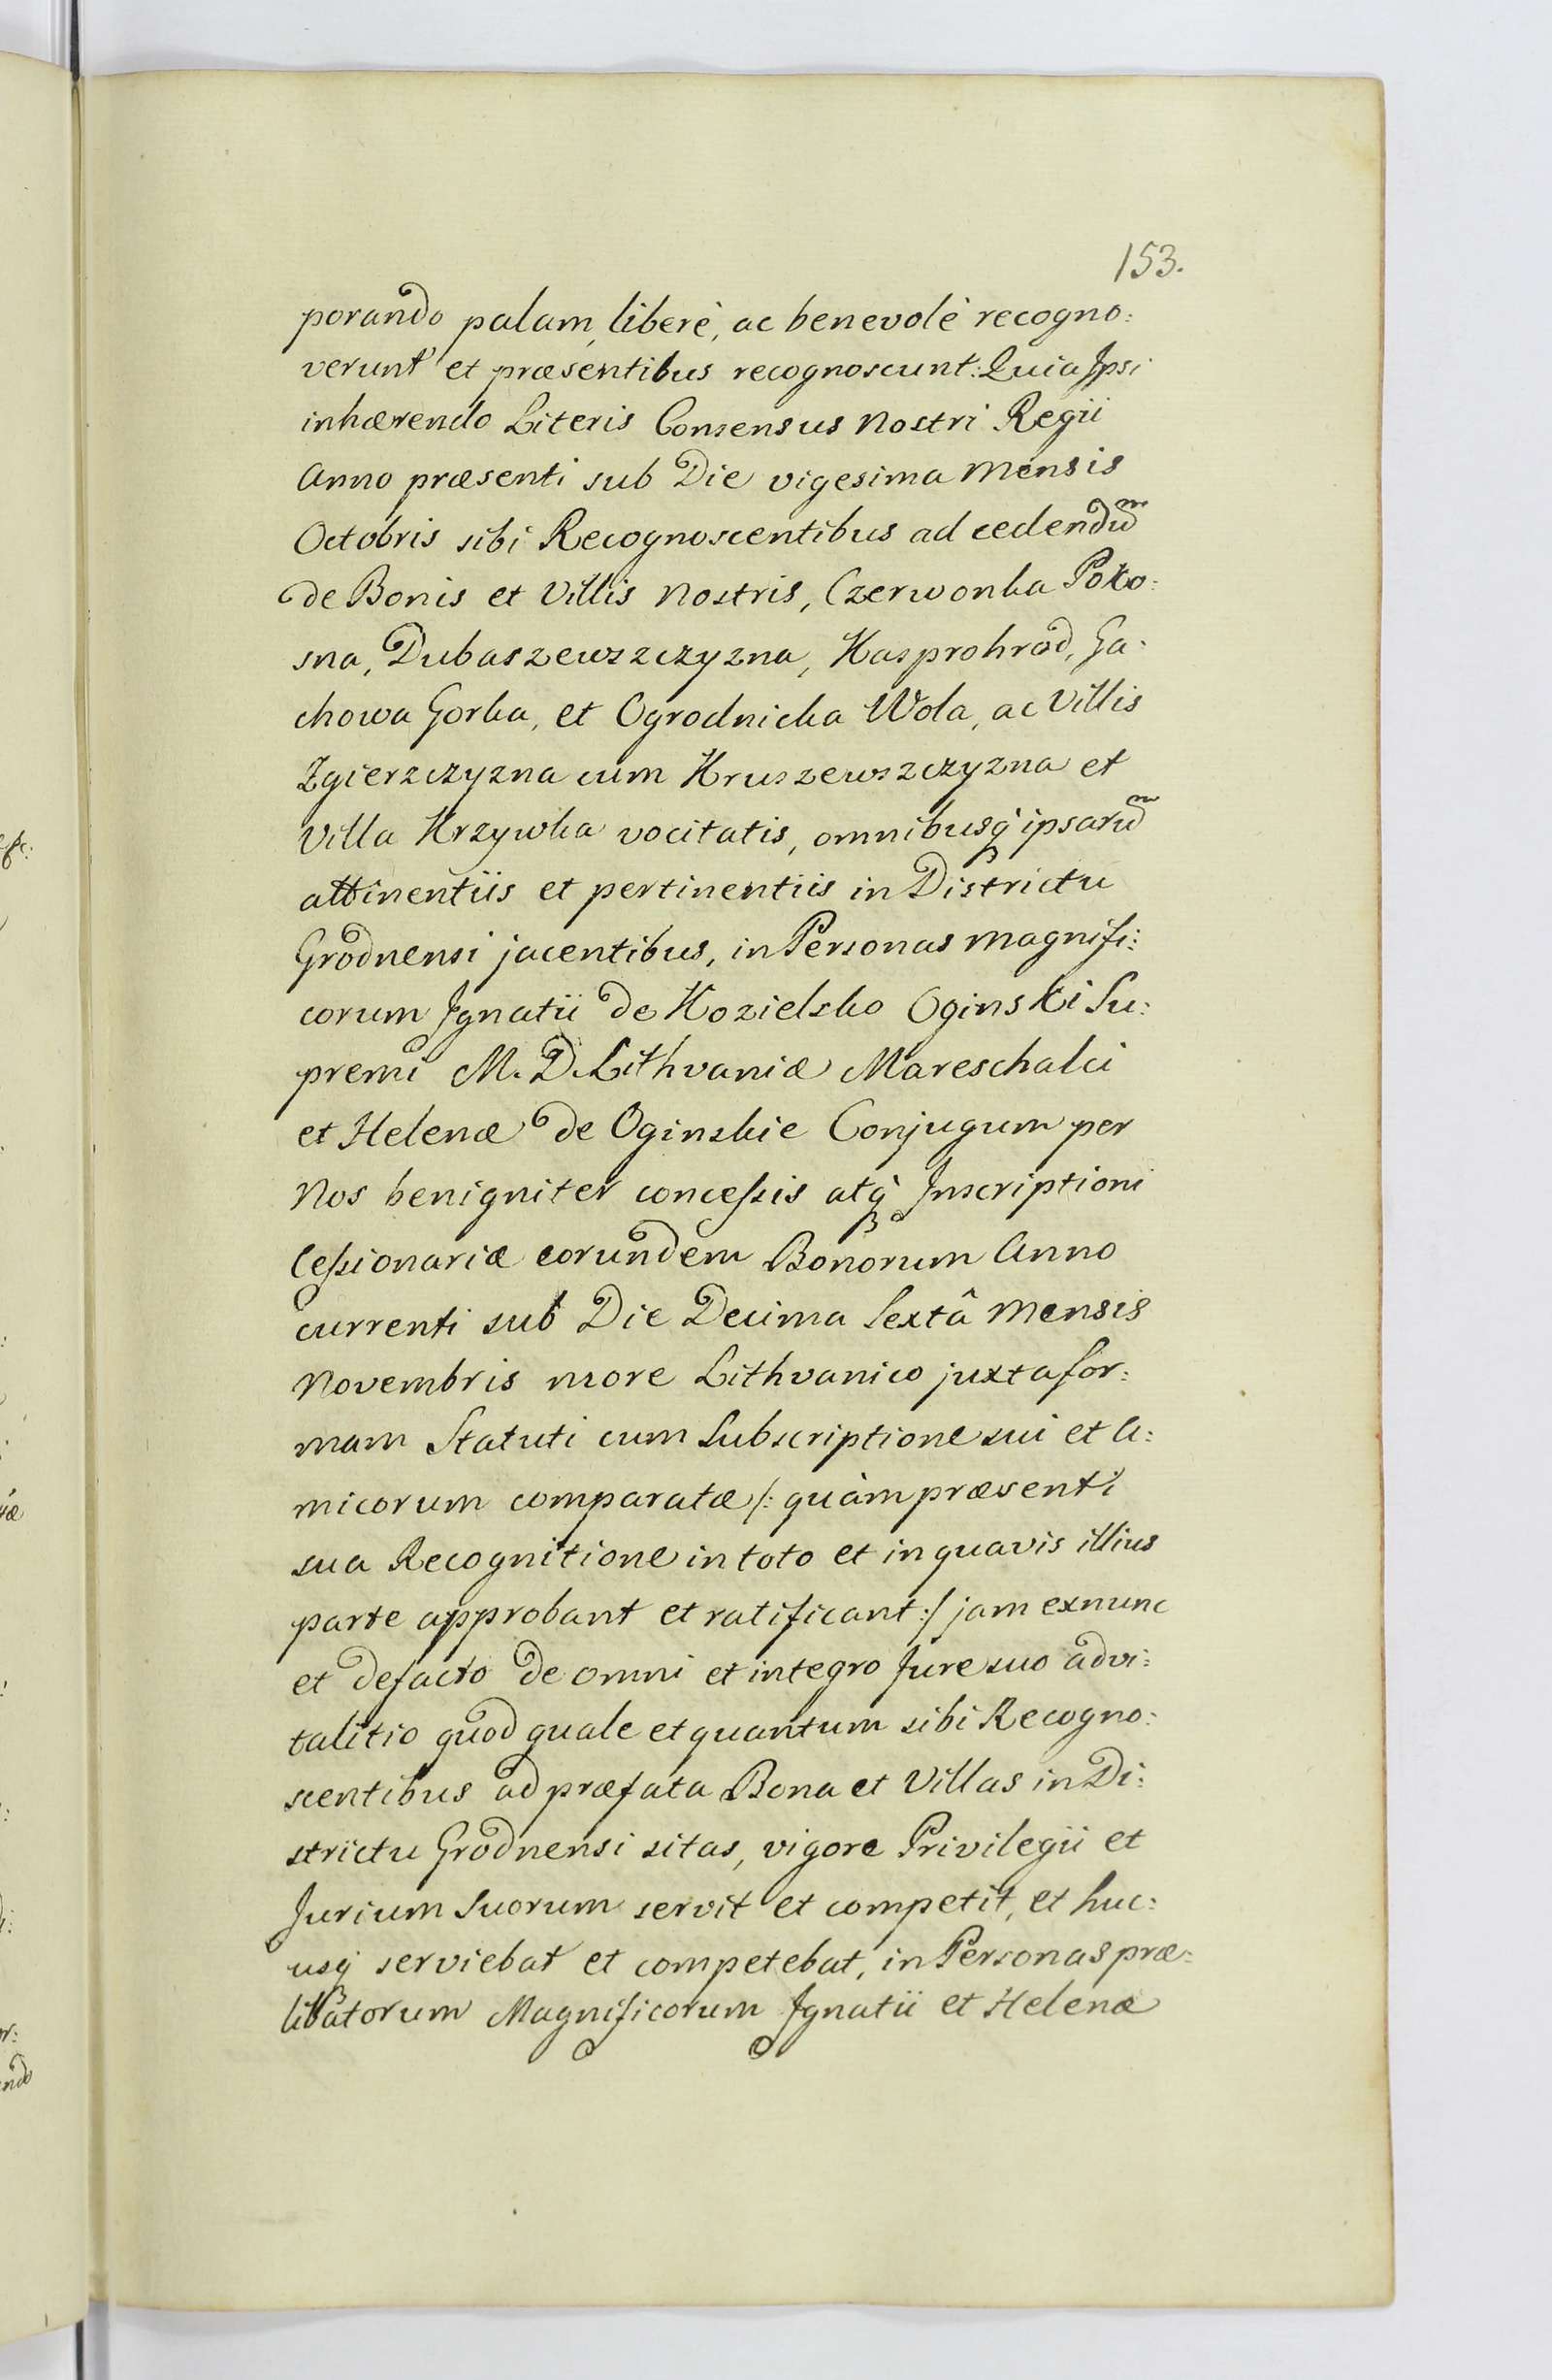 153.
porando palam, liberè, ac benevolè recogno:
verunt et præsentibus recognoscunt: Quia Ipsi
inhærendo Literis Consensus Nostri Regii
Anno præsenti sub Die vigesima Mensis
Octobris sibi Recognoscentibus ad cedendũ
de Bonis et Villis Nostris, Czerwonka Poko:
sna, Dubaszewszczyzna, Kasprohrod, Ga:
chowa Gorka, et Ogrodnicka Wola, ac Villis
Zgierzczyzna cum Kruszewszczyzna et
Villa Krzywka vocitatis, omnibusq́ ipsarũ
attinentiis et pertinentiis in Districtu
Grodnensi jacentibus, in Personas Magnifi:
corum Ignatii de Kozielsko Oginski Su:
premi M. D. Lithvaniæ Mareschalci
et Helenæ de Oginskie Conjugum per
Nos benigniter conceſsis atq́ Inscriptioni
Ceſsionariæ eorundem Bonorum Anno
currenti sub Die Decima Sextâ Mensis
Novembris more Lithvanico juxta for:
mam Statuti cum Subscriptione sui et A:
micorum comparatæ /: quàm præsenti
sua Recognitione in toto et in quavis illius
parte approbant et ratificant :/ jam exnunc
et defacto de omni et integro Jure suo advi:
talitio quod quale et quantum sibi Recogno:
scentibus ad præfata Bona et Villas in Di:
strictu Grodnensi sitas, vigore Privilegii et
Jurium Suorum servit et competit, et huc:
usq́ serviebat et competebat, in Personas præ:
libatorum Magnificorum Ignatii et Helenæ